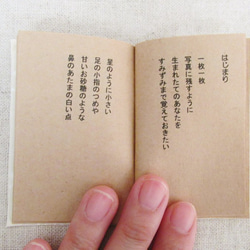 はじまり
一枚一枚
写真に残すように
生まれたてのあなたを
すみずみまで覚えておきたい
星のように小さい
足の小指のつめや
甘いお砂糖のような
鼻のあたまの白い点